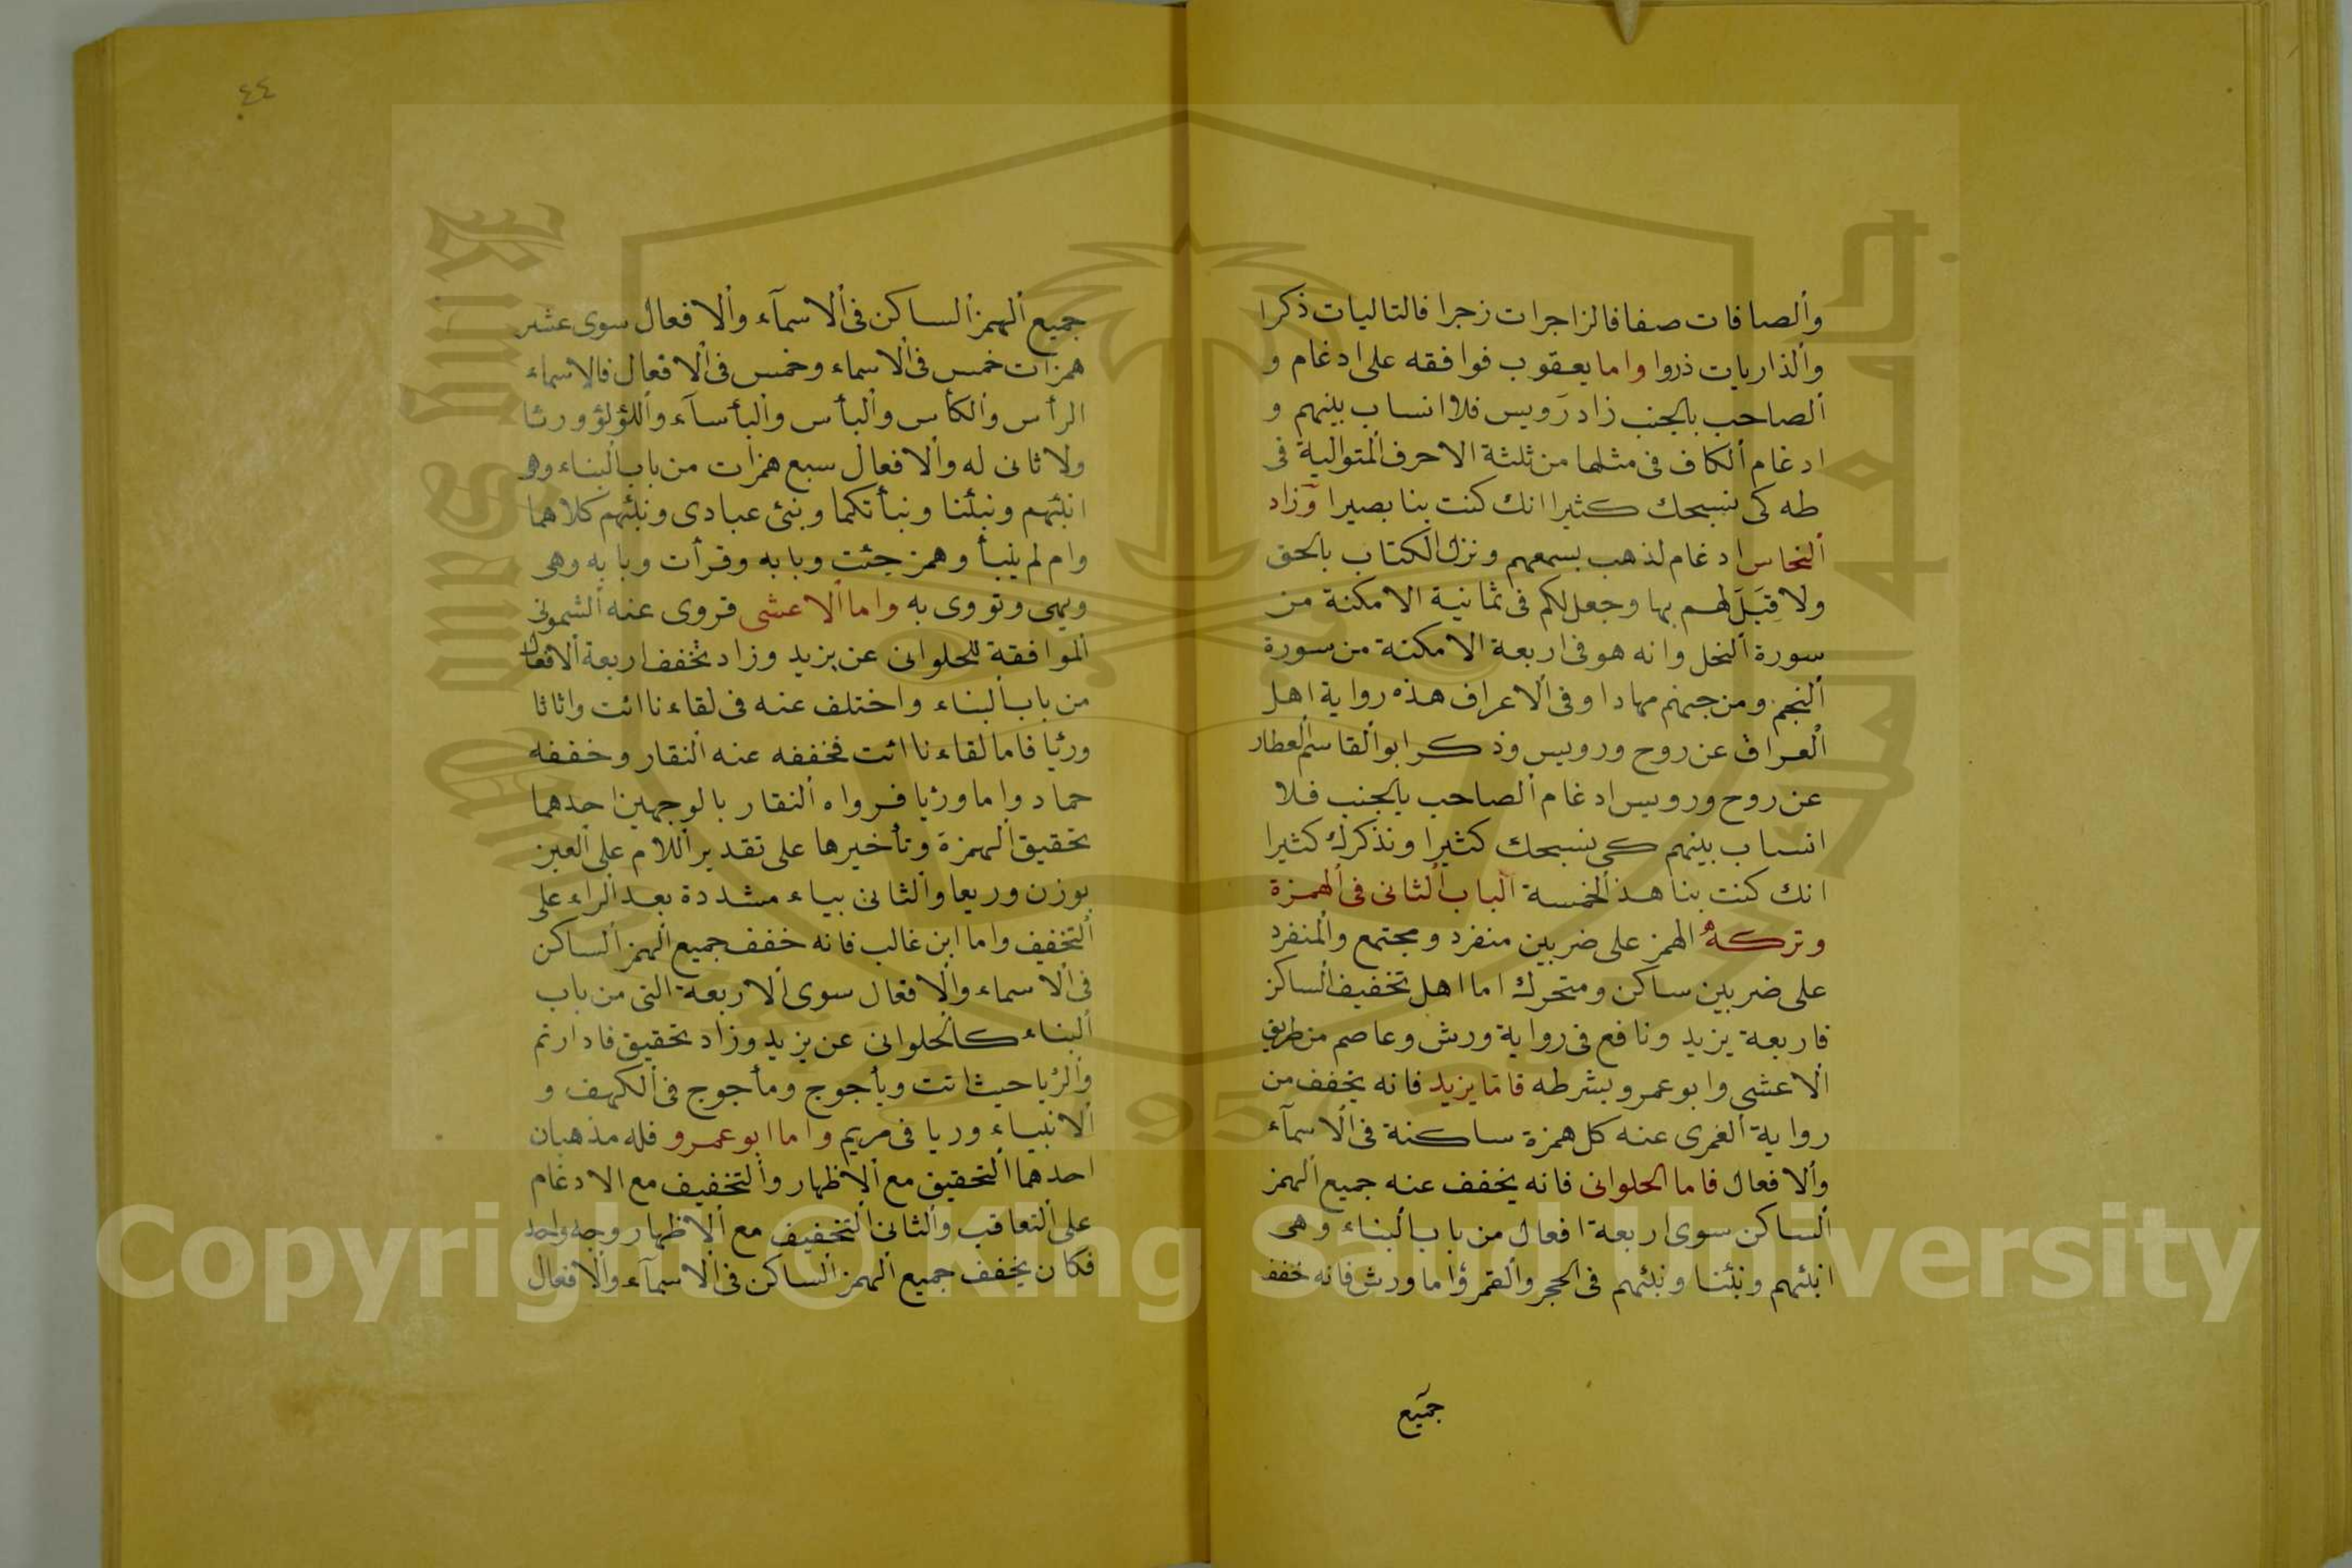 والصافات صفا فالزاجرات زجرا فالتاليات ذكرا
والذاريات ذروا واما يعقوب فوافقه على ادغام و
الصاحب بالجنب زاد رويس فلا انساب بينهم و
ادغام الكاف فى مثلها من ثلثة الاحرف المتوالية فى
طه كى نسبحك كثيرا انك كنت بنا بصيرا وزاد
النحاس ادغام لذهب بسمعهم ونزل الكتاب بالحق
ولا قِبَلَ لهم بها وجعل لكم فى ثمانية الامكنة من
سورة النحل وانه هو فى اربعة الامكنة من سورة
النجم ومن جهنم مهادا وفى الاعراف هذه رواية اهل
العراق عن روح ورويس وذكر ابو القاسم العطار
عن روح ورويس ادغام الصاحب بالجنب فلا
انساب بينهم كى نسبحك كثيرا ونذكرك كثيرا
انك كنت بنا هذ الخمسة الباب الثانى فى الهمزة
وتركه الهمز على ضربين منفرد ومجتمع والمنفرد
على ضربين ساكن ومتحرك اما اهل تخفيف الساكن
فاربعة يزيد ونافع فى رواية ورش وعاصم من طريق
الاعشى وابو عمرو بشرطه فاما يزيد فانه يخفف من
رواية العمرى عنه كل همزة ساكنة فى الاسمآء
والافعال فاما الحلوانى فانه يخفف عنه جميع الهمز
الساكن سوى اربعة افعال من باب البناء وهى
انبئهم ونبئنا ونبئهم فى الحجر والقمر واما ورش فانه خفف
جميع
٤٤
جميع الهمز الساكن فى الاسمآء والافعال سوى عشر
همزات خمس فى الاسماء وخمس فى الافعال فالاسماء
الرأس والكأس والبأس والبأسآء واللؤلؤ ورئا
ولا ثانى له والافعال سبع همزات من باب البناء وهو
انبئهم ونبئنا ونبأتكما ونبئ عبادى ونبئهم كلاهما
وام لم ينبأ وهمز جئت وبابه وقرأت وبابه وهى
ويهى وتووى به واما الاعشى فروى عنه الشمونى
الموافقة للحلوانى عن يزيد وزاد تخفف اربعة الافعال
من باب البناء واختلف عنه فى لقاءنا ائت واثاثا
ورئيا فاما لقاءنا ائت فخففه عنه النقار وخففه
حماد واما ورئيا فرواه النقار بالوجهين احدهما
تحقيق الهمزة وتأخيرها على تقدير اللام على العين
بوزن وريعا والثانى بياء مشددة بعد الراء على
التخفيف واما ابن غالب فانه خفف جميع الهمز الساكن
فى الاسماء والافعال سوى الاربعة التى من باب
البناء كالحلوانى عن يزيد وزاد تحقيق فادارتم
والرئيا حيث اتت ويأجوج ومأجوج فى الكهف و
الانبياء وريا فى مريم واما ابو عمرو فله مذهبان
احدهما التحقيق مع الاظهار والتخفيف مع الادغام
على التعاقب والثانى التخفيف مع الاظهار وجه واحد
فكان يخفف جميع الهمز الساكن فى الاسمآء والافعال
Copyright © King Saud University